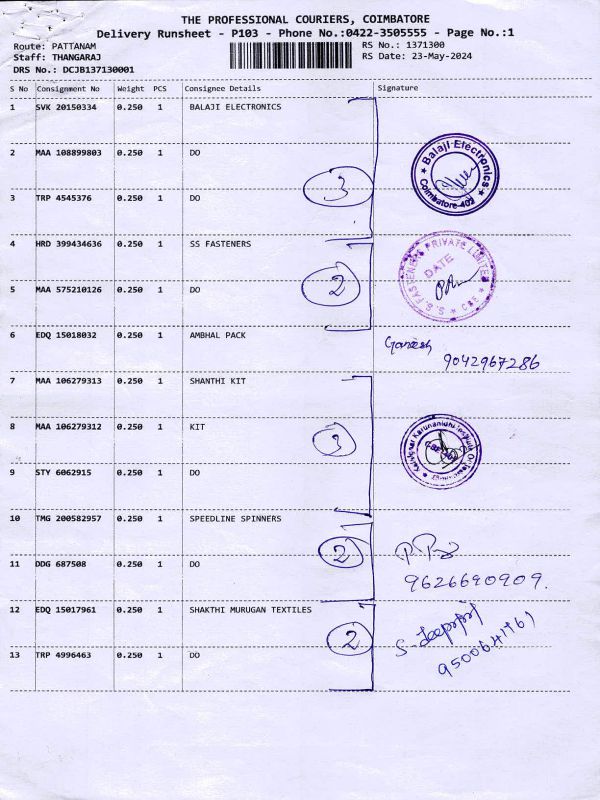 THE PROFESSIONAL COURIERS, COIMBATORE
Delivery Runsheet - P103 - Phone No.:0422-3505555 - Page No.:1
Route: PATTANAM RS No.: 1371300
Staff: THANGARAJ RS Date: 23-May-2024
DRS No.: DCJB137130001
S No Consignment No Weight PCS Consignee Details Signature
1 SVK 20150334 0.250 1 BALAJI ELECTRONICS
2 MAA 108899803 0.250 1 DO
Balaji Electronics
Coimbatore-402
3 TRP 4545376 0.250 1 DO
3
4 HRD 399434636 0.250 1 SS FASTENERS
S.S. FASTENERS PRIVATE LIMITED
DATE
CBE
5 MAA 575210126 0.250 1 DO
2
6 EDQ 15018032 0.250 1 AMBHAL PACK
Ganesh
9042967286
7 MAA 106279313 0.250 1 SHANTHI KIT
8 MAA 106279312 0.250 1 KIT
3
9 STY 6062915 0.250 1 DO
10 TMG 200582957 0.250 1 SPEEDLINE SPINNERS
2
11 DDG 687508 0.250 1 DO
9626690909.
12 EDQ 15017961 0.250 1 SHAKTHI MURUGAN TEXTILES
2
13 TRP 4996463 0.250 1 DO